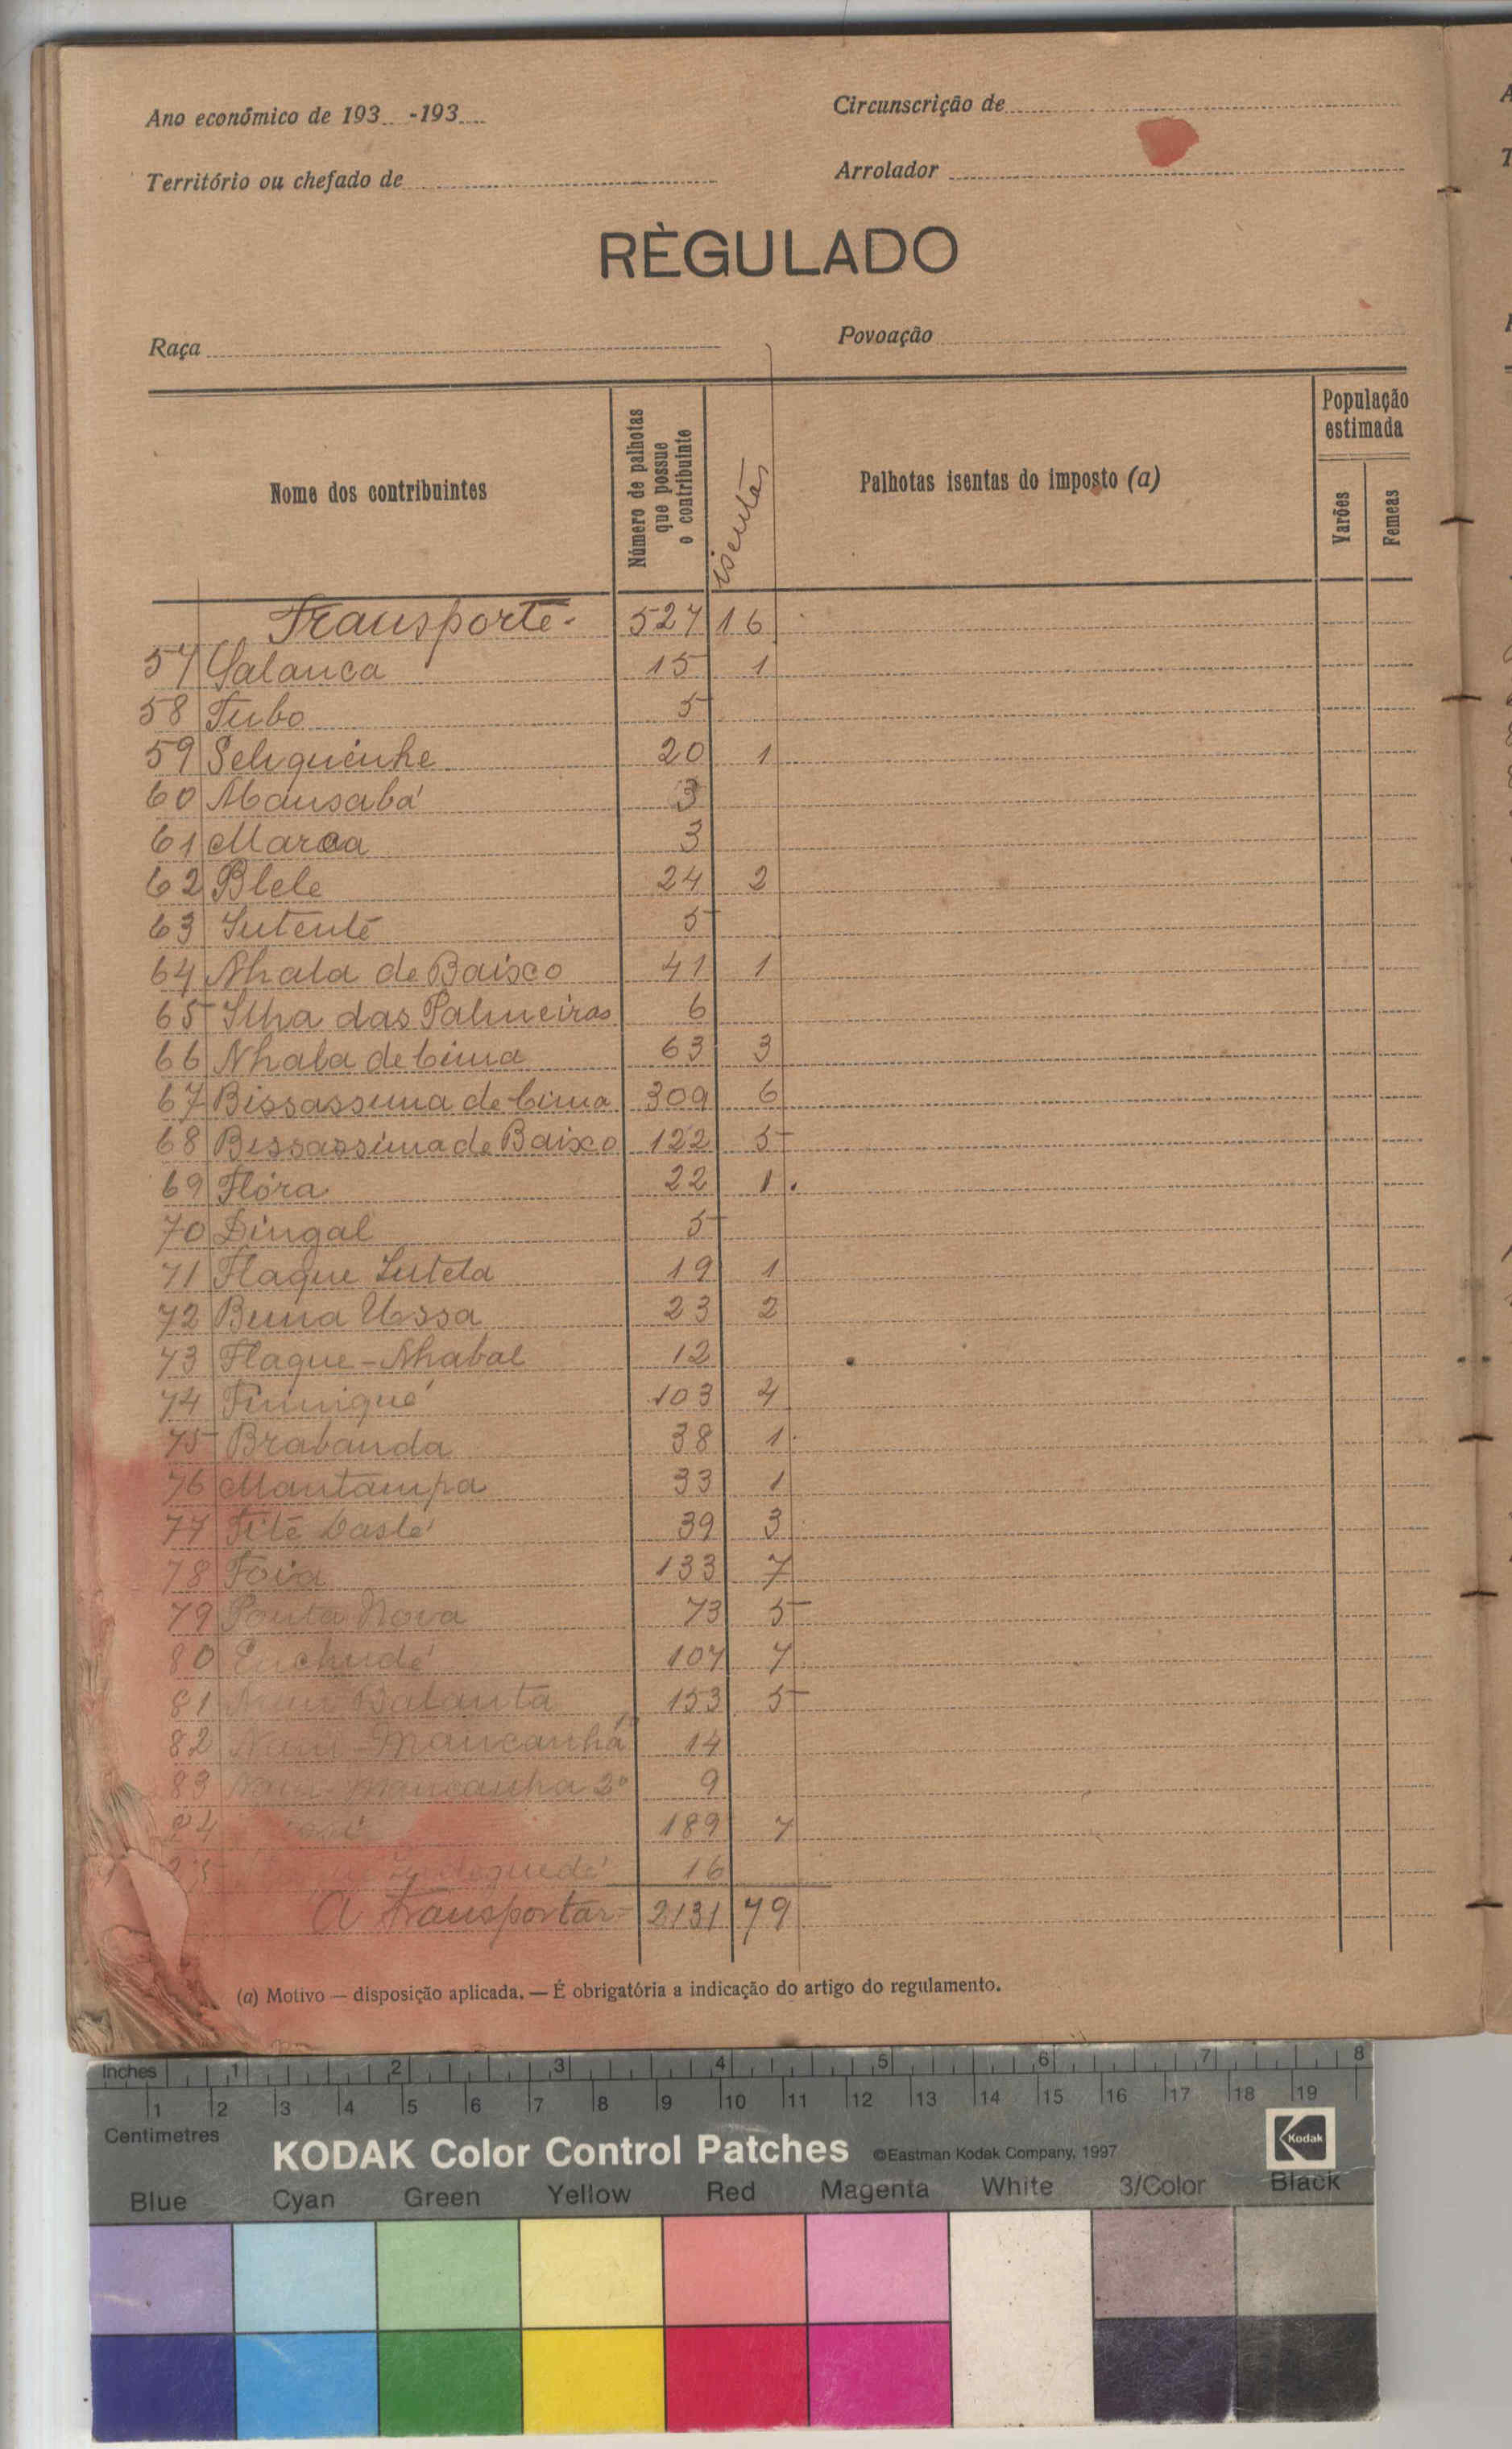 Ano económico de 193... -193....
Circunscrição de
Território ou chefado de
Arrolador
RÈGULADO
Raça
Povoação
Nome dos contribuintes
Número de palhotas que possue o contribuinte
isentas
Palhotas isentas do imposto (a)
População estimada
Varões
Femeas
Transporte - 527 16
57 Galanca 15 1
58 Tubo 5
59 20 1
60 Mansabá 3
61 3
62 Blele 24 2
63 5
64 Nhala de Baixo 41 1
65 Ilha das Palmeiras 6
66 Nhala de Cima 63 3
67 Bissassema de Cima 309 6
68 Bissassema de Baixo 122 5
69 Flóra 22 1
70 Dingal 5
71 Flaque 19 1
72 Buna Ussa 23 2
73 Flaque-Nhabal 12
74 103 4
75 Brabanda 38 1
76 Mantampa 33 1
77 Tite 39 3
78 Foia 133 7
79 Ponta Nova 73 5
80 Enchudé 107 7
81 Balanta 153 5
82 Mancanhá 14
83 Mancanha 2º 9
189 7
16
A transportar - 2131 79
(a) Motivo — disposição aplicada. — É obrigatória a indicação do artigo do regulamento.
Inches 1 2 3 4 5 6 7 8
1 2 3 4 5 6 7 8 9 10 11 12 13 14 15 16 17 18 19
Centimetres
KODAK Color Control Patches ©Eastman Kodak Company, 1997 Kodak
Blue Cyan Green Yellow Red Magenta White 3/Color Black